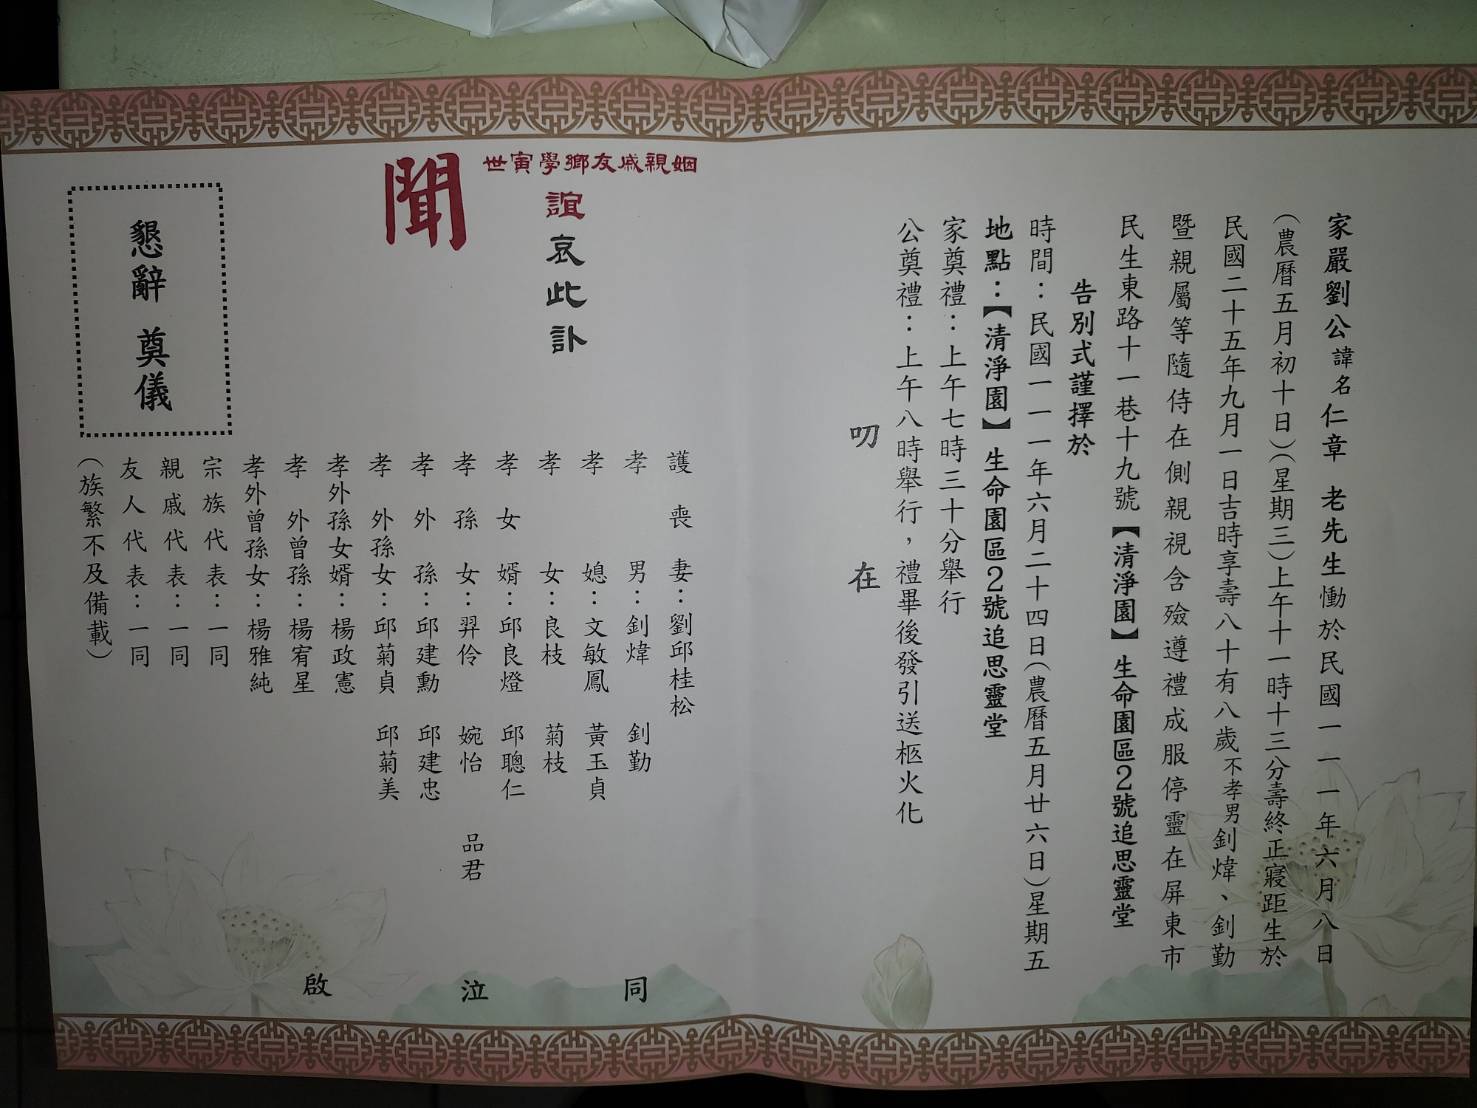 家嚴劉公諱名仁章 老先生慟於民國一一一年六月八日
(農曆五月初十日)(星期三)上午十一時十三分壽終正寢距生於
民國二十五年九月一日吉時享壽八十有八歲不孝男釗煒、釗勤
暨親屬等隨侍在側親視含殮遵禮成服停靈在屏東市
民生東路十一巷十九號【清淨園】生命園區2號追思靈堂
告別式謹擇於
時間：民國一一一年六月二十四日(農曆五月廿六日)星期五
地點：【清淨園】生命園區2號追思靈堂
家奠禮：上午七時三十分舉行
公奠禮：上午八時舉行，禮畢後發引送柩火化
叨 在
姻親戚友鄉學寅世
誼哀此訃
聞
護喪妻：劉邱桂松
孝男：釗煒 釗勤
孝媳：文敏鳳 黃玉貞
孝女：良枝 菊枝
孝女婿：邱良燈 邱聰仁
孝孫女：羿伶 婉怡 品君
孝外孫：邱建勳 邱建忠
孝外孫女：邱菊貞 邱菊美
孝外孫女婿：楊政憲
孝外曾孫：楊宥星
孝外曾孫女：楊雅純
宗族代表：一同
親戚代表：一同
友人代表：一同
(族繁不及備載)
同 泣 啟
懇辭 奠儀